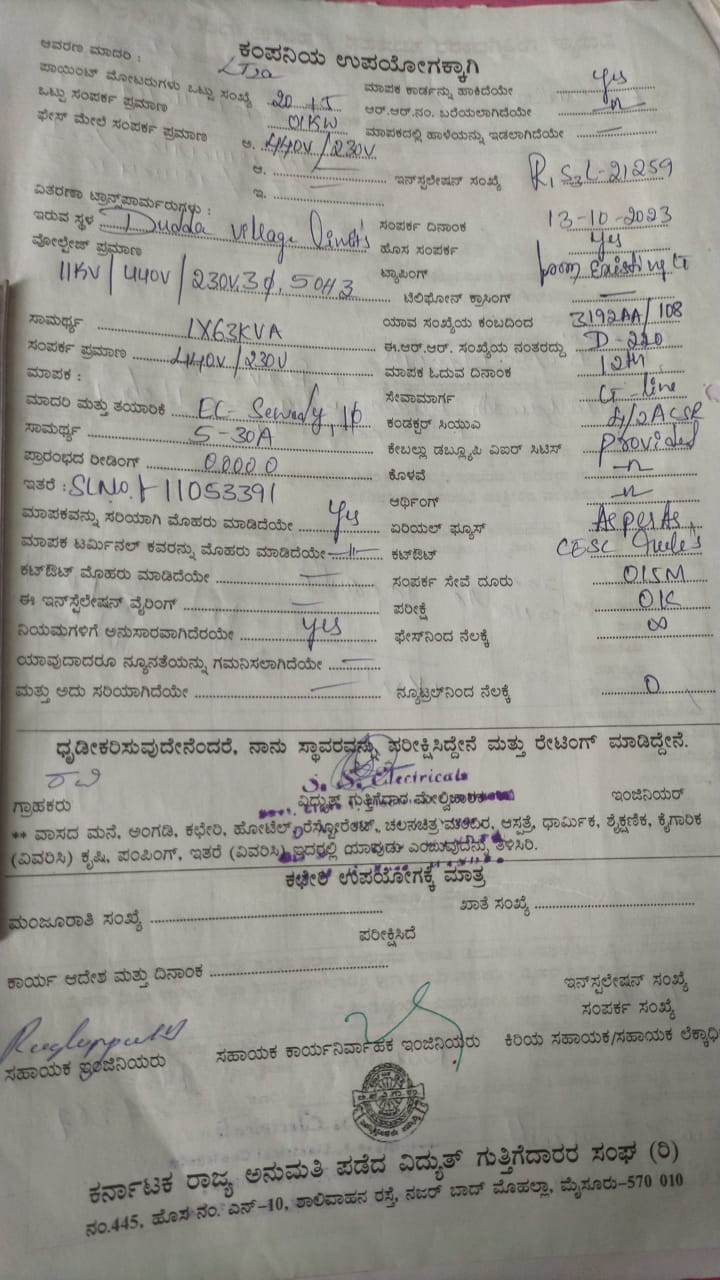 ಕಂಪನಿಯ ಉಪಯೋಗಕ್ಕಾಗಿ
ಆವರಣ ಮಾದರಿ :
ಪಾಯಿಂಟ್ ಮೋಟರುಗಳು ಒಟ್ಟು ಸಂಖ್ಯೆ
ಒಟ್ಟು ಸಂಪರ್ಕ ಪ್ರಮಾಣ 01KW
ಫೇಸ್ ಮೇಲೆ ಸಂಪರ್ಕ ಪ್ರಮಾಣ ಅ. 440V/230V
ಆ.
ಇ.
ಮಾಪಕ ಕಾರ್ಡನ್ನು ಹಾಕಿದೆಯೇ Yes
ಆರ್.ಆರ್.ನಂ. ಬರೆಯಲಾಗಿದೆಯೇ —n—
ಮಾಪಕದಲ್ಲಿ ಹಾಳೆಯನ್ನು ಇಡಲಾಗಿದೆಯೇ —
ಇನ್‌ಸ್ಪಲೇಷನ್ ಸಂಖ್ಯೆ 21259
ವಿತರಣಾ ಟ್ರಾನ್ಸ್‌ಪಾರ್ಮರುಗಳು :
ಇರುವ ಸ್ಥಳ Dudda
ವೋಲ್ಟೇಜ್ ಪ್ರಮಾಣ
11KV/440V/230V.3ϕ,
ಸಾಮರ್ಥ್ಯ 1X63KVA
ಸಂಪರ್ಕ ಪ್ರಮಾಣ 440V/230V
ಮಾಪಕ :
ಮಾದರಿ ಮತ್ತು ತಯಾರಿಕೆ
ಸಾಮರ್ಥ್ಯ 5-30A
ಪ್ರಾರಂಭದ ರೀಡಿಂಗ್ 00000
ಇತರೆ : SL No. 11053391
ಮಾಪಕವನ್ನು ಸರಿಯಾಗಿ ಮೊಹರು ಮಾಡಿದೆಯೇ Yes
ಮಾಪಕ ಟರ್ಮಿನಲ್ ಕವರನ್ನು ಮೊಹರು ಮಾಡಿದೆಯೇ —11—
ಕಟ್‌ಔಟ್ ಮೊಹರು ಮಾಡಿದೆಯೇ —
ಈ ಇನ್‌ಸ್ಪೆಲೇಷನ್ ವೈರಿಂಗ್ —
ನಿಯಮಗಳಿಗೆ ಅನುಸಾರವಾಗಿದೆರಯೇ Yes
ಯಾವುದಾದರೂ ನ್ಯೂನತೆಯನ್ನು ಗಮನಿಸಲಾಗಿದೆಯೇ —
ಮತ್ತು ಅದು ಸರಿಯಾಗಿದೆಯೇ —
ಸಂಪರ್ಕ ದಿನಾಂಕ 13-10-2023
ಹೊಸ ಸಂಪರ್ಕ Yes
ಟ್ಯಾಪಿಂಗ್ from Existing
ಟೆಲಿಫೋನ್ ಕ್ರಾಸಿಂಗ್ —
ಯಾವ ಸಂಖ್ಯೆಯ ಕಂಬದಿಂದ 3192AA/108
ಈ.ಆರ್.ಆರ್. ಸಂಖ್ಯೆಯ ನಂತರದ್ದು D-220
ಮಾಪಕ ಓದುವ ದಿನಾಂಕ 12th
ಸೇವಾಮಾರ್ಗ line
ಕಂಡಕ್ಟರ್ ಸಿಯುಎ ACSR
ಕೇಬಲ್ಲು ಡಬ್ಲ್ಯೂಪಿ ಎಐರ್ ಸಿಟಿಸ್ Provided
ಕೊಳವೆ —n—
ಆರ್ಥಿಂಗ್ —n—
ಏರಿಯಲ್ ಫ್ಯೂಸ್ As per As
ಕಟ್‌ಔಟ್ CESC
ಸಂಪರ್ಕ ಸೇವೆ ದೂರು 015M
ಪರೀಕ್ಷೆ OK
ಫೇಸ್‌ನಿಂದ ನೆಲಕ್ಕೆ ∞
ನ್ಯೂಟ್ರಲ್‌ನಿಂದ ನೆಲಕ್ಕೆ 0
ಧೃಡೀಕರಿಸುವುದೇನೆಂದರೆ, ನಾನು ಸ್ಥಾವರವನ್ನು ಪರೀಕ್ಷಿಸಿದ್ದೇನೆ ಮತ್ತು ರೇಟಿಂಗ್ ಮಾಡಿದ್ದೇನೆ.
ರವಿ
S. S. Electricals
ಗ್ರಾಹಕರು ವಿದ್ಯುತ್ ಗುತ್ತಿಗೆದಾರ ಮೇಲ್ವಿಚಾರಕ ಇಂಜಿನಿಯರ್
** ವಾಸದ ಮನೆ, ಅಂಗಡಿ, ಕಛೇರಿ, ಹೋಟೆಲ್, ರೆಸ್ಟೋರೆಂಟ್, ಚಲನಚಿತ್ರ ಮಂದಿರ, ಆಸ್ಪತ್ರೆ, ಧಾರ್ಮಿಕ, ಶೈಕ್ಷಣಿಕ, ಕೈಗಾರಿಕ
(ವಿವರಿಸಿ) ಕೃಷಿ, ಪಂಪಿಂಗ್, ಇತರೆ (ವಿವರಿಸಿ) ಇದರಲ್ಲಿ ಯಾವುದು ಎಂಬುವುದನ್ನು ತಿಳಿಸಿರಿ.
ಕಛೇರಿ ಉಪಯೋಗಕ್ಕೆ ಮಾತ್ರ
ಮಂಜೂರಾತಿ ಸಂಖ್ಯೆ ಖಾತೆ ಸಂಖ್ಯೆ
ಪರೀಕ್ಷಿಸಿದೆ
ಕಾರ್ಯ ಆದೇಶ ಮತ್ತು ದಿನಾಂಕ
ಇನ್‌ಸ್ಪಲೇಷನ್ ಸಂಖ್ಯೆ
ಸಂಪರ್ಕ ಸಂಖ್ಯೆ
ಸಹಾಯಕ ಇಂಜಿನಿಯರು ಸಹಾಯಕ ಕಾರ್ಯನಿರ್ವಾಹಕ ಇಂಜಿನಿಯರು ಕಿರಿಯ ಸಹಾಯಕ/ಸಹಾಯಕ ಲೆಕ್ಕಾಧಿ
ಕರ್ನಾಟಕ ರಾಜ್ಯ ಅನುಮತಿ ಪಡೆದ ವಿದ್ಯುತ್ ಗುತ್ತಿಗೆದಾರರ ಸಂಘ (ರಿ)
ನಂ.445, ಹೊಸ ನಂ. ಎನ್-10, ಶಾಲಿವಾಹನ ರಸ್ತೆ, ನಜರ್ ಬಾದ್ ಮೊಹಲ್ಲಾ, ಮೈಸೂರು-570 010